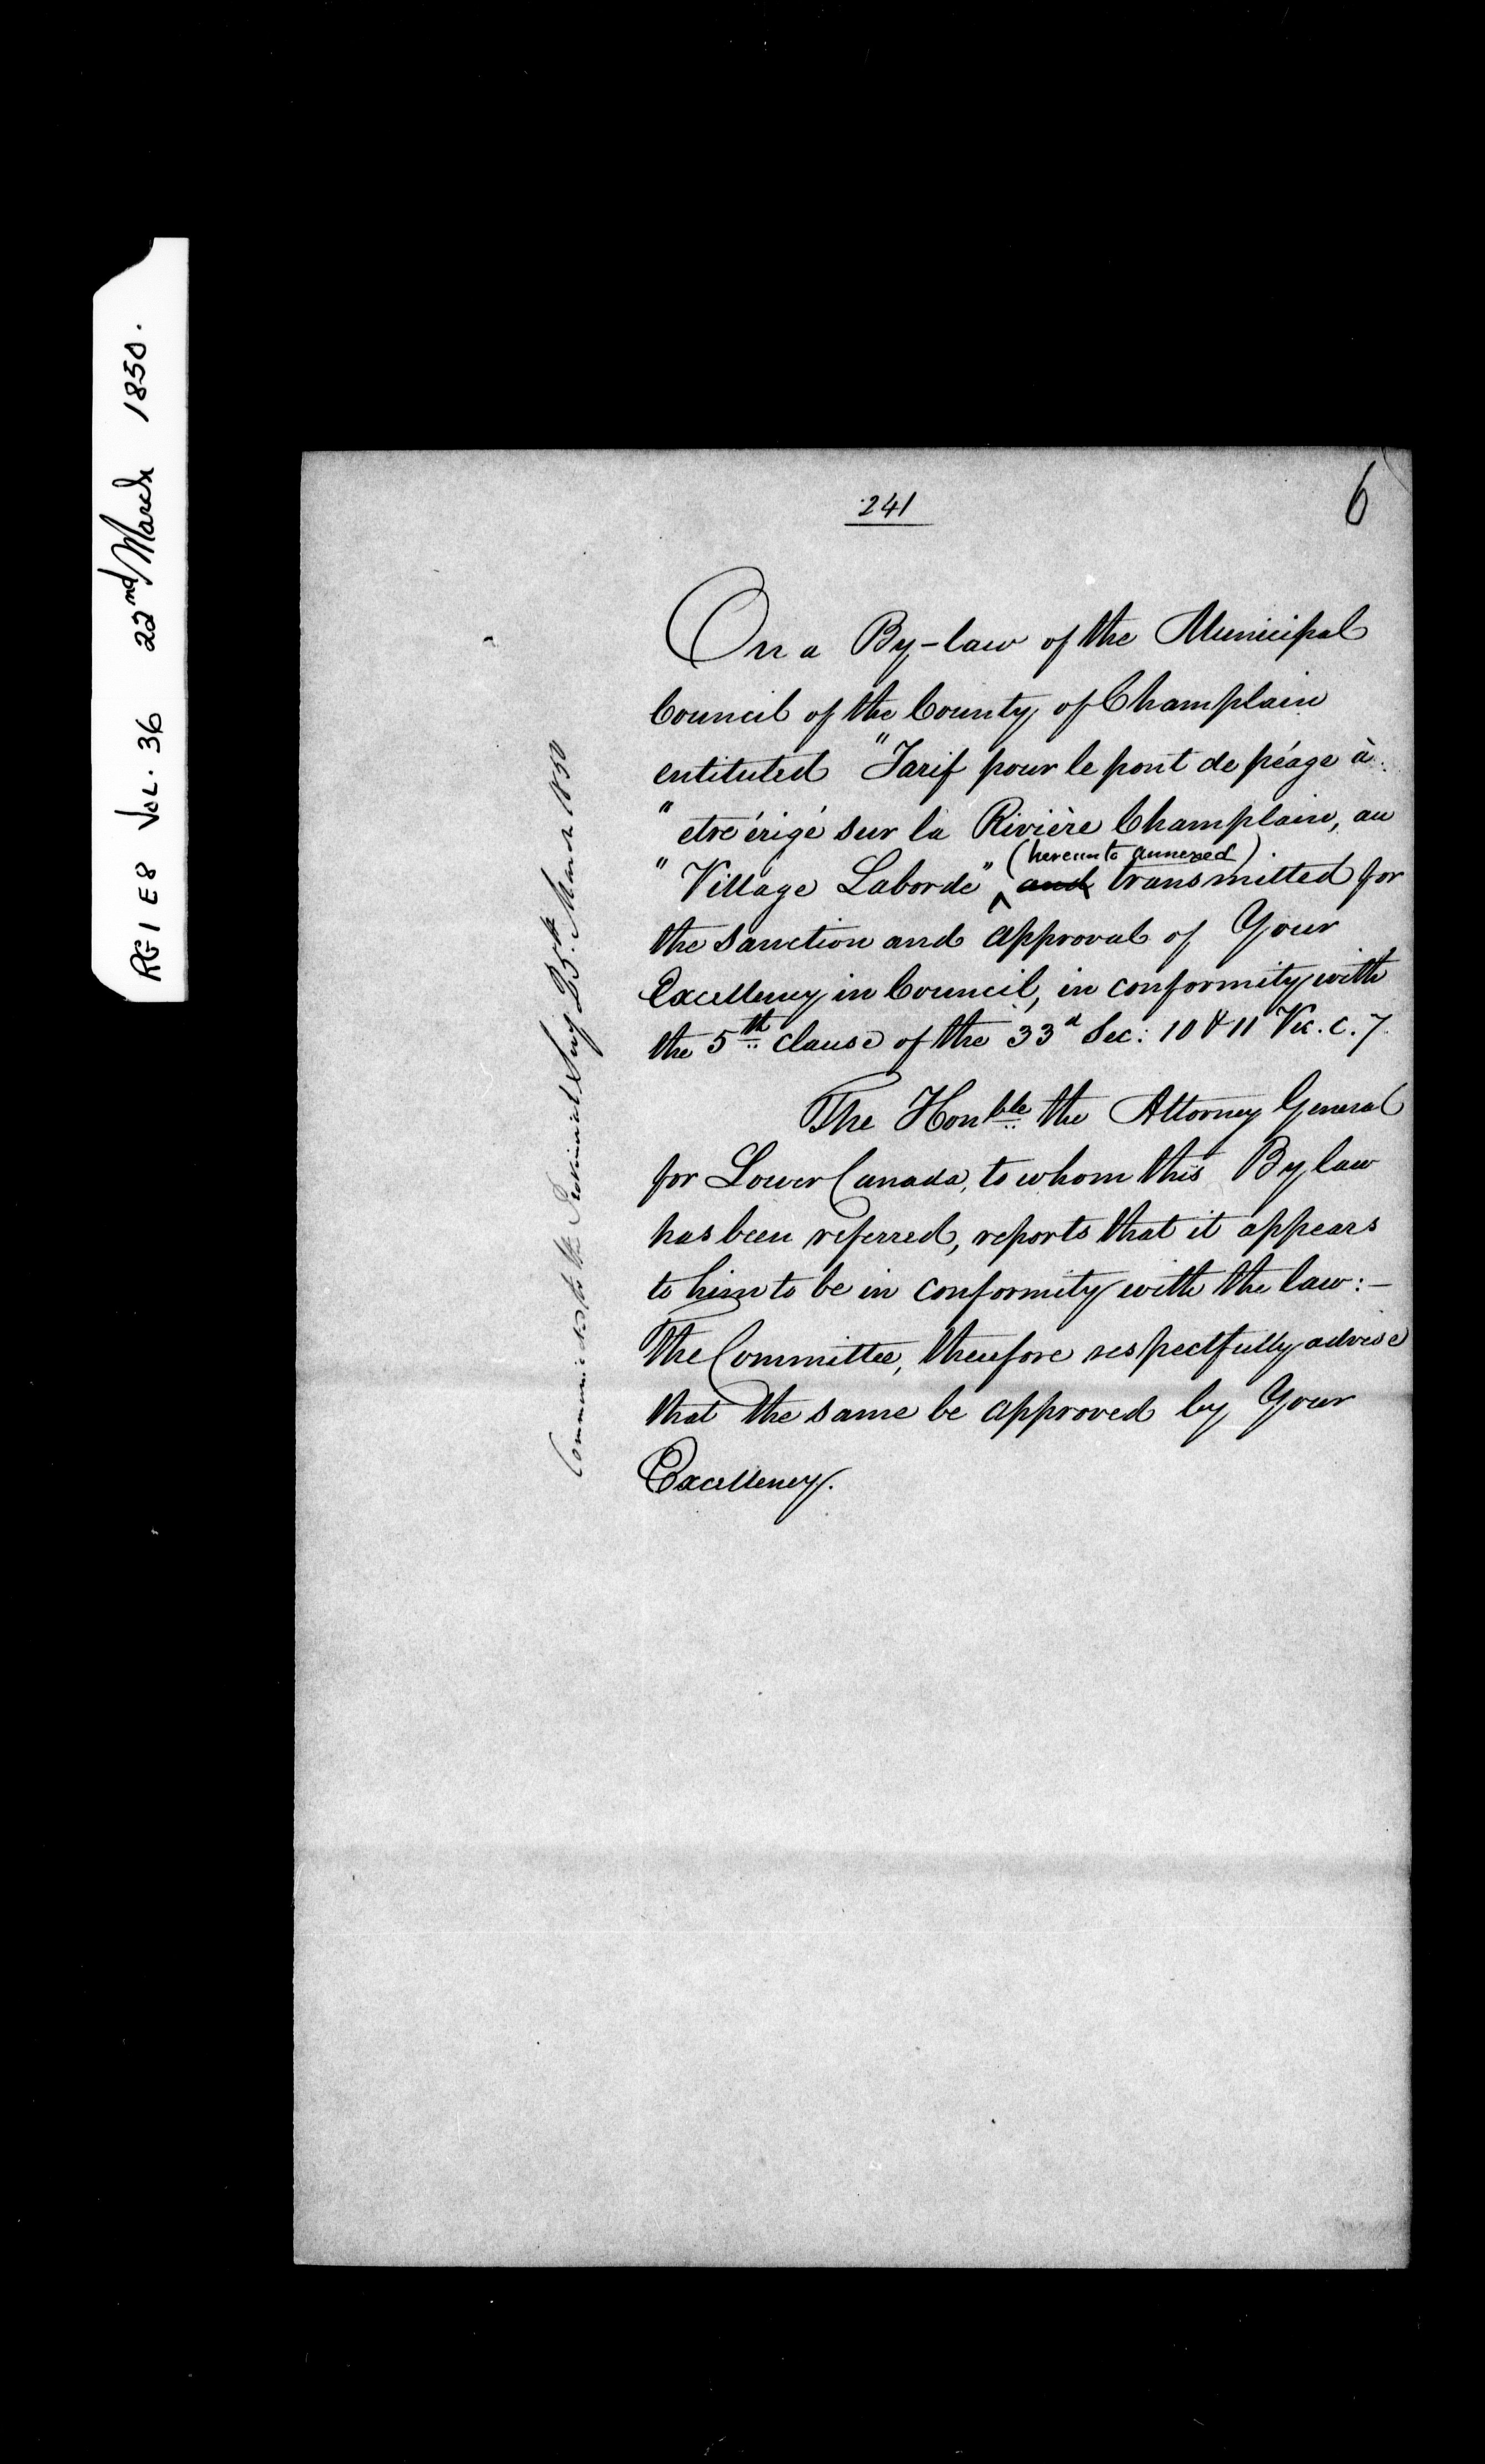 RG 1 E8 Vol. 36 22nd March 1850.
241
6
On a By-law of the Municipal
Council of the County of Champlain
entituted "Tarif pour le pont de péage à
" etre érigé sur la Rivière Champlain, au
(hereunto annexed)
" Village Laborde" and transmitted for
the sanction and approval of Your
Excellency in Council, in conformity with
the 5th clause of the 33d Sec: 10 & 11 Vic. c. 7.
The Honble the Attorney General
for Lower Canada, to whom this By law
has been referred, reports that it appears
to him to be in conformity with the law:—
The Committee, therefore respectfully advise
that the same be approved by Your
Excellency.
to the Provincial Secy 25th March 1850